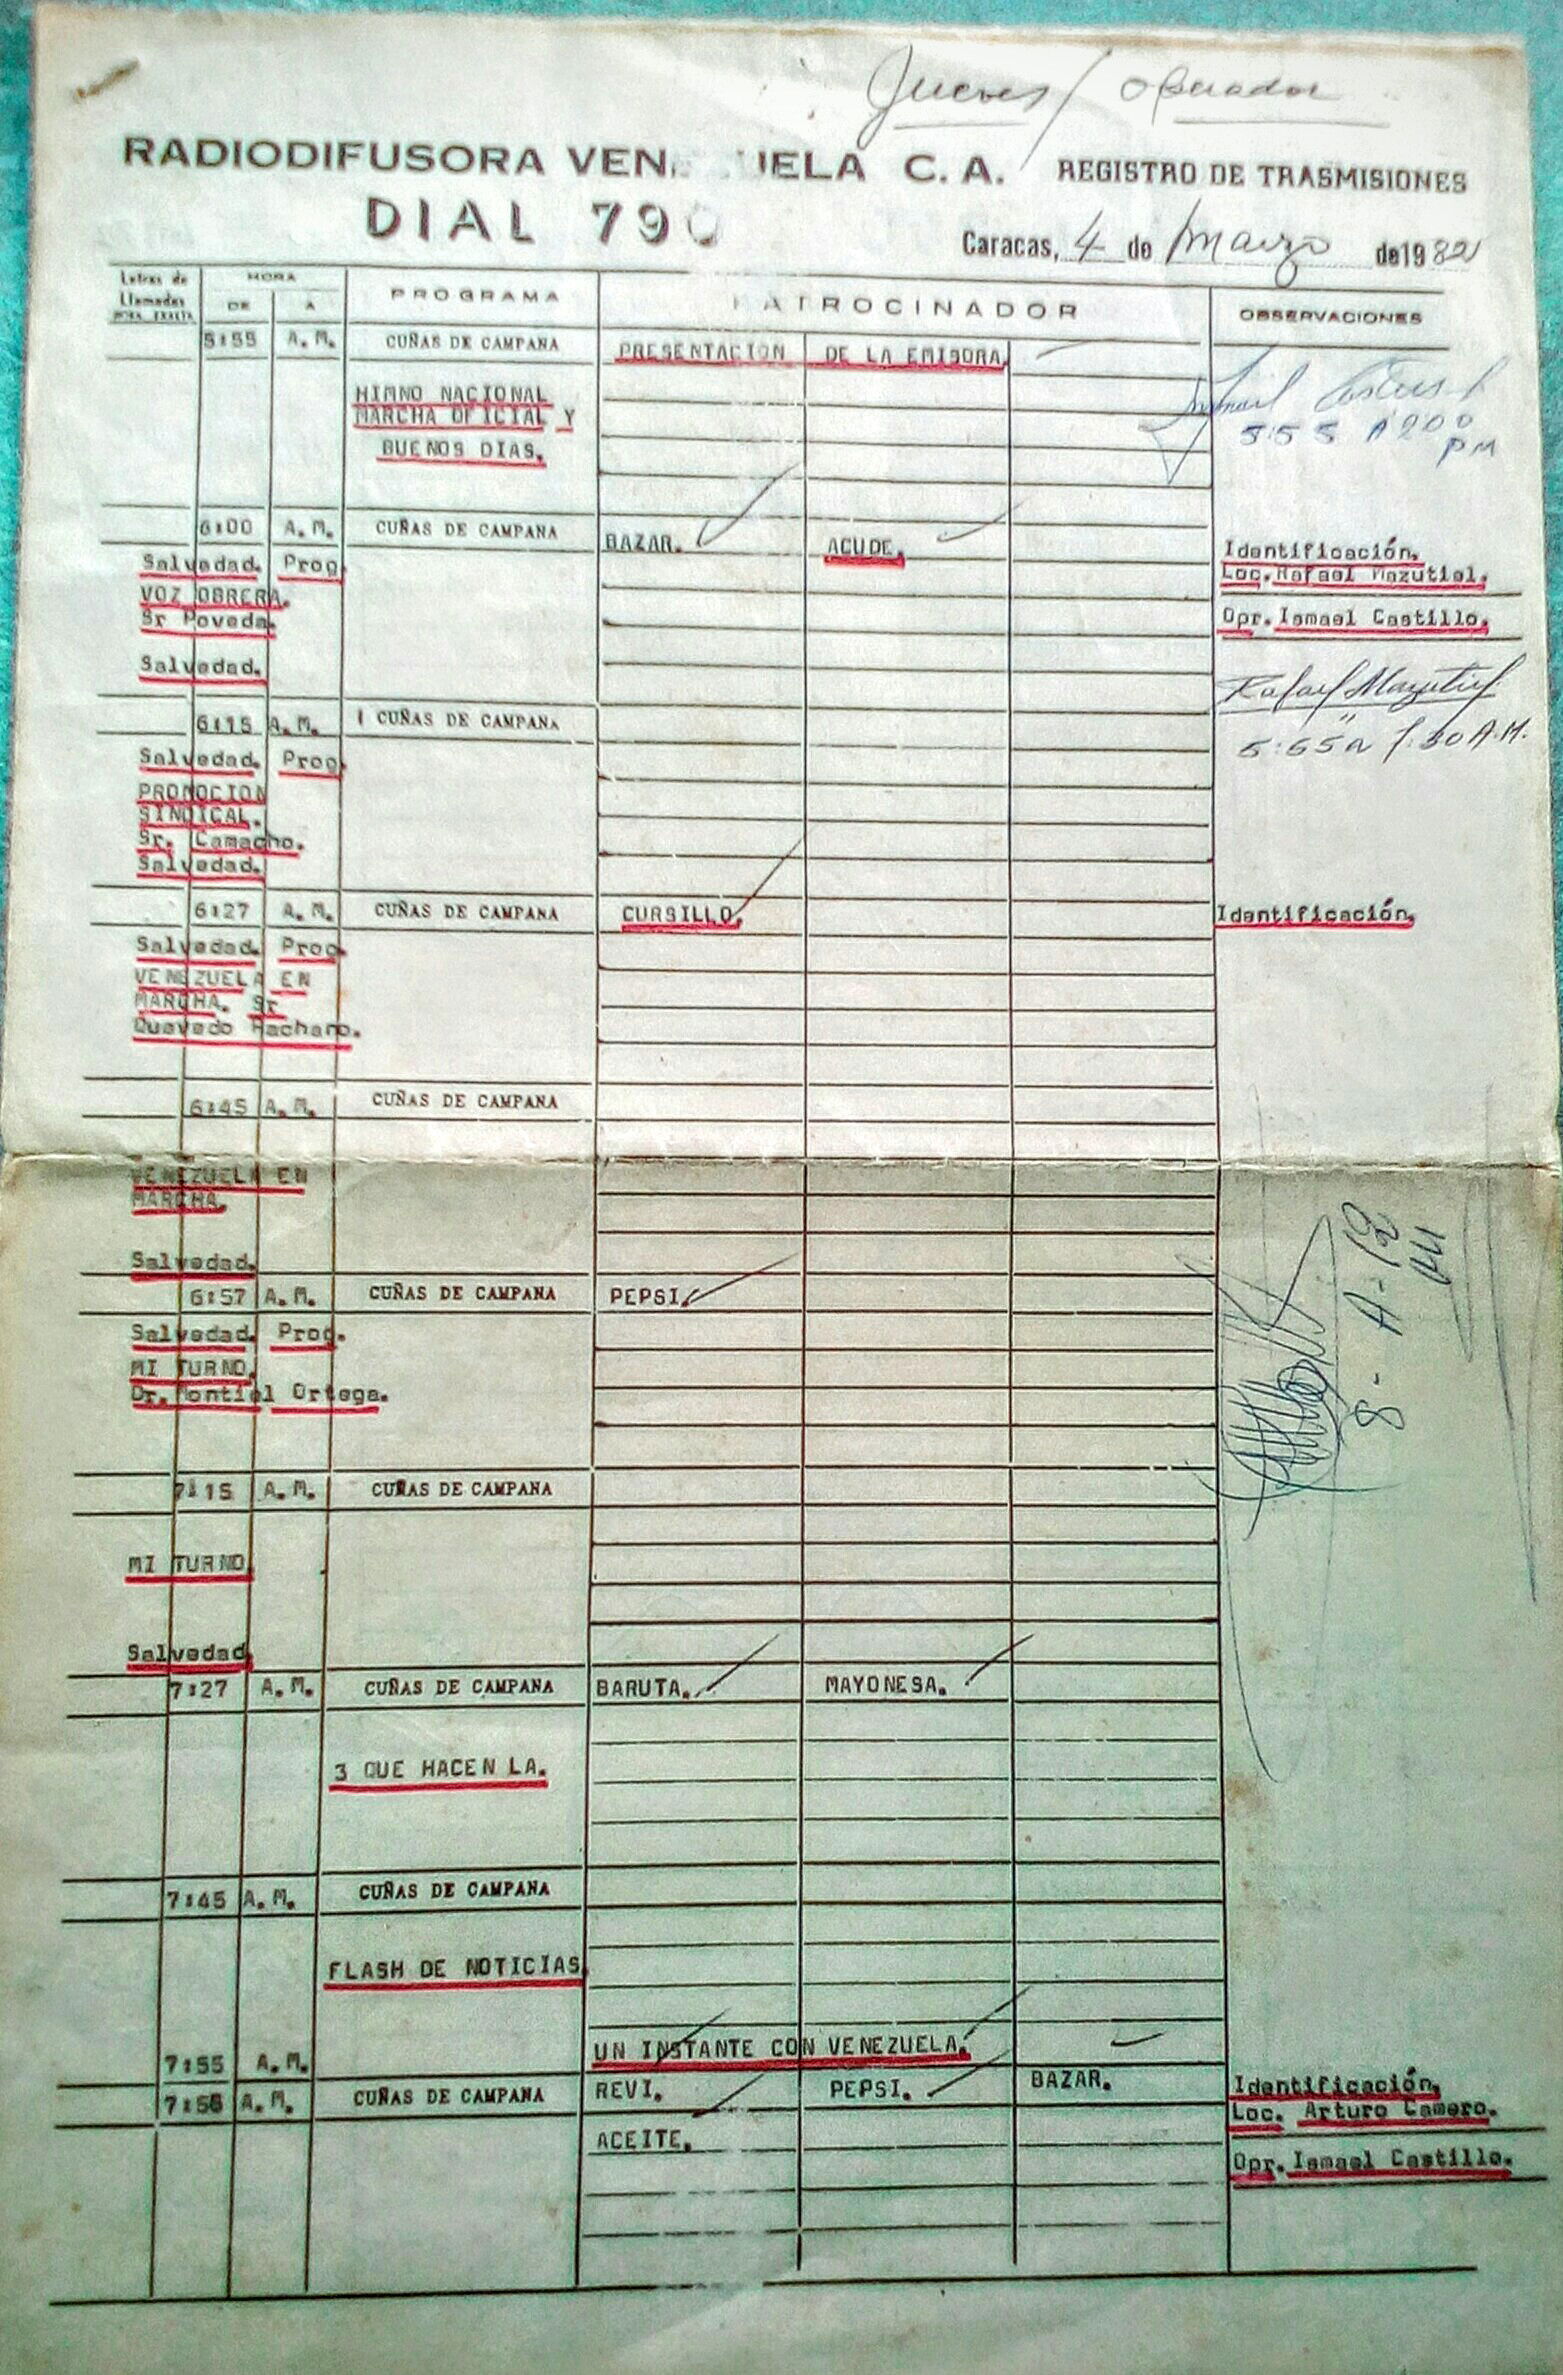 Jueves / Operador
RADIODIFUSORA VENEZUELA C. A. REGISTRO DE TRASMISIONES
DIAL 790
Caracas, 4 de Marzo de 1982
Letras de Llamadas HORA EXACTA
HORA
DE A
PROGRAMA
PATROCINADOR
OBSERVACIONES
5:55 A.M. CUÑAS DE CAMPANA PRESENTACION DE LA EMISORA
HIMNO NACIONAL
MARCHA OFICIAL Y
BUENOS DIAS.
5:55 A 2:00
PM
6:00 A.M. CUÑAS DE CAMPANA BAZAR. ACUDE. Identificación.
Salvedad. Prog
VOZ OBRERA.
Sr Poveda.
Loc. Rafael Mazutiel.
Opr. Ismael Castillo.
Salvedad.
Rafael Mazutiel
6:15 A.M. 1 CUÑAS DE CAMPANA
Salvedad. Prog
PROMOCION
SINDICAL.
Sr. Camacho.
Salvedad.
6:27 A.M. CUÑAS DE CAMPANA CURSILLO. Identificación.
Salvedad. Prog.
VENEZUELA EN
MARCHA. Sr
Quevedo Pacharo.
6:45 A.M. CUÑAS DE CAMPANA
VENEZUELA EN
MARCHA.
Salvedad.
6:57 A.M. CUÑAS DE CAMPANA PEPSI.
Salvedad. Prog.
MI TURNO.
Dr. Montiel Ortega.
8-A-12
7:15 A.M. CUÑAS DE CAMPANA
MI TURNO
Salvedad
7:27 A.M. CUÑAS DE CAMPANA BARUTA. MAYONESA.
3 QUE HACEN LA.
7:45 A.M. CUÑAS DE CAMPANA
FLASH DE NOTICIAS
7:55 A.M. UN INSTANTE CON VENEZUELA.
7:56 A.M. CUÑAS DE CAMPANA REVI. PEPSI. BAZAR. Identificación.
Loc. Arturo Camero.
ACEITE.
Opr. Ismael Castillo.